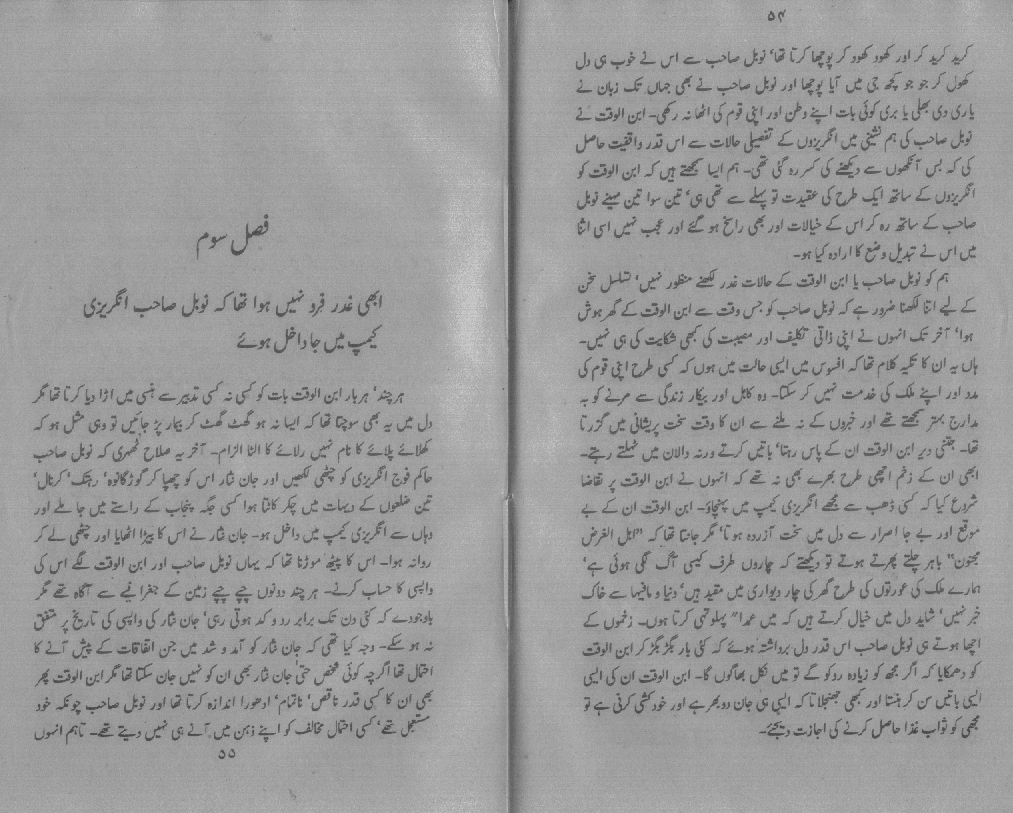 ۵۴
کرید کرید کر اور کھود کھود کر پوچھا کرتا تھا‘ نوبل صاحب سے اس نے خوب ہی دل
کھول کر جو جو کچھ جی میں آیا پوچھا اور نوبل صاحب نے بھی جہاں تک زبان نے
یاری دی بھلی یا بری کوئی بات اپنے وطن اور اپنی قوم کی اٹھا نہ رکھی۔ ابن الوقت نے
نوبل صاحب کی ہم نشینی میں انگریزوں کے تفصیلی حالات سے اس قدر واقفیت حاصل
کی کہ بس آنکھوں سے دیکھنے کی کسر رہ گئی تھی۔ ہم ایسا سمجھتے ہیں کہ ابن الوقت کو
انگریزوں کے ساتھ ایک طرح کی عقیدت تو پہلے سے تھی ہی‘ تین سوا تین مہینے نوبل
صاحب کے ساتھ رہ کر اس کے خیالات اور بھی راسخ ہو گئے اور عجب نہیں اسی اثنا
میں اس نے تبدیل وضع کا ارادہ کیا ہو۔
ہم کو نوبل صاحب یا ابن الوقت کے حالات غدر لکھنے منظور نہیں‘ تسلسل سخن
کے لیے اتنا لکھنا ضرور ہے کہ نوبل صاحب کو جس وقت سے ابن الوقت کے گھر ہوش
ہوا‘ آخر تک انہوں نے اپنی ذاتی تکلیف اور مصیبت کی کبھی شکایت کی ہی نہیں۔
ہاں یہ ان کا تکیہ کلام تھا کہ افسوس میں ایسی حالت میں ہوں کہ کسی طرح اپنی قوم کی
مدد اور اپنے ملک کی خدمت نہیں کر سکتا۔ وہ کاہل اور بیکار زندگی سے مرنے کو بہ
مدارج بہتر سمجھتے تھے اور خبروں کے نہ ملنے سے ان کا وقت سخت پریشانی میں گزرتا
تھا۔ جتنی دیر ابن الوقت ان کے پاس رہتا‘ باتیں کرتے ورنہ والان میں ٹہلتے رہتے۔
ابھی ان کے زخم اچھی طرح بھرے بھی نہ تھے کہ انہوں نے ابن الوقت پر تقاضا
شروع کیا کہ کسی ڈھب سے مجھے انگریزی کیمپ میں پہنچاؤ۔ ابن الوقت ان کے بے
موقع اور بے جا اصرار سے دل میں سخت آزردہ ہوتا‘ مگر جانتا تھا کہ "اہل الغرض
مجنون" باہر چلتے پھرتے ہوتے تو دیکھتے کہ چاروں طرف کیسی آگ لگی ہوئی ہے‘
ہمارے ملک کی عورتوں کی طرح گھر کی چار دیواری میں مقید ہیں‘ دنیا و مافیہا سے خاک
خبر نہیں‘ شاید دل میں خیال کرتے ہیں کہ میں عمدا" پہلو تہی کرتا ہوں۔ زخموں کے
اچھا ہوتے ہی نوبل صاحب اس قدر دل برداشتہ ہوئے کہ کئی بار بگڑ بگڑ کر ابن الوقت
کو دھمکایا کہ اگر مجھ کو زیادہ روکو گے تو میں نکل بھاگوں گا۔ ابن الوقت ان کی ایسی
ایسی باتیں سن کر ہنستا اور کبھی جھنجلاتا کہ ایسی ہی جان دوبھر ہے اور خودکشی کرنی ہے تو
مجھی کو ثواب غذا حاصل کرنے کی اجازت دیجئے۔
فصل سوم
ابھی غدر فرد نہیں ہوا تھا کہ نوبل صاحب انگریزی
کیمپ میں جا داخل ہوئے
ہر چند‘ ہر بار ابن الوقت بات کو کسی نہ کسی تدبیر سے ہنسی میں اڑا دیا کرتا تھا مگر
دل میں یہ بھی سوچتا تھا کہ ایسا نہ ہو گھٹ گھٹ کر بیمار پڑ جائیں تو وہی مثل ہو کہ
کھلائے پلائے کا نام نہیں رلائے کا الٹا الزام۔ آخر یہ صلاح ٹھہری کہ نوبل صاحب
حاکم فوج انگریزی کو چٹھی لکھیں اور جان نثار اس کو چھپا کر گوڑگانوہ‘ رہتک‘ کرنال‘
تین ضلعوں کے دیہات میں چکر کاٹتا ہوا کسی جگہ پنجاب کے راستے میں جا ملے اور
وہاں سے انگریزی کیمپ میں داخل ہو۔ جان نثار نے اس کا بیڑا اٹھایا اور چٹھی لے کر
روانہ ہوا۔ اس کا پیٹھ موڑنا تھا کہ یہاں نوبل صاحب اور ابن الوقت لگے اس کی
واپسی کا حساب کرنے۔ ہر چند دونوں چپے چپے زمین کے جغرافیے سے آگاہ تھے مگر
باوجودے کہ کئی دن تک برابر رد و کد ہوتی رہی‘ جان نثار کی واپسی کی تاریخ پر متفق
نہ ہو سکے۔ وجہ کیا تھی کہ جان نثار کو آمد و شد میں جن اتفاقات کے پیش آنے کا
احتمال تھا اگرچہ کوئی شخص حتیٰ جان نثار بھی ان کو نہیں جان سکتا تھا مگر ابن الوقت پھر
بھی ان کا کسی قدر ناقص‘ ناتمام‘ ادھورا اندازہ کرتا تھا اور نوبل صاحب چونکہ خود
مستعجل تھے‘ کسی احتمال مخالف کو اپنے ذہن میں آنے ہی نہیں دیتے تھے۔ تاہم انہوں
۵۵